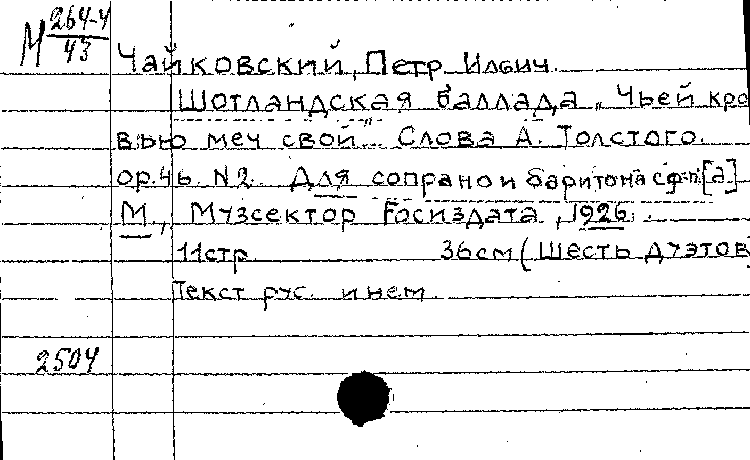 М 264-4
43
Чайковский, Петр Ильич.
Шотландская баллада „Чьей кро
вью меч свой". Слова А. Толстого.
op. 46. N2. Для сопрано и баритона с ф-п. [a]
М., Музсектор Госиздата, 1926.
11стр. 36см (Шесть дуэтов
Текст рус. и нем.
2504